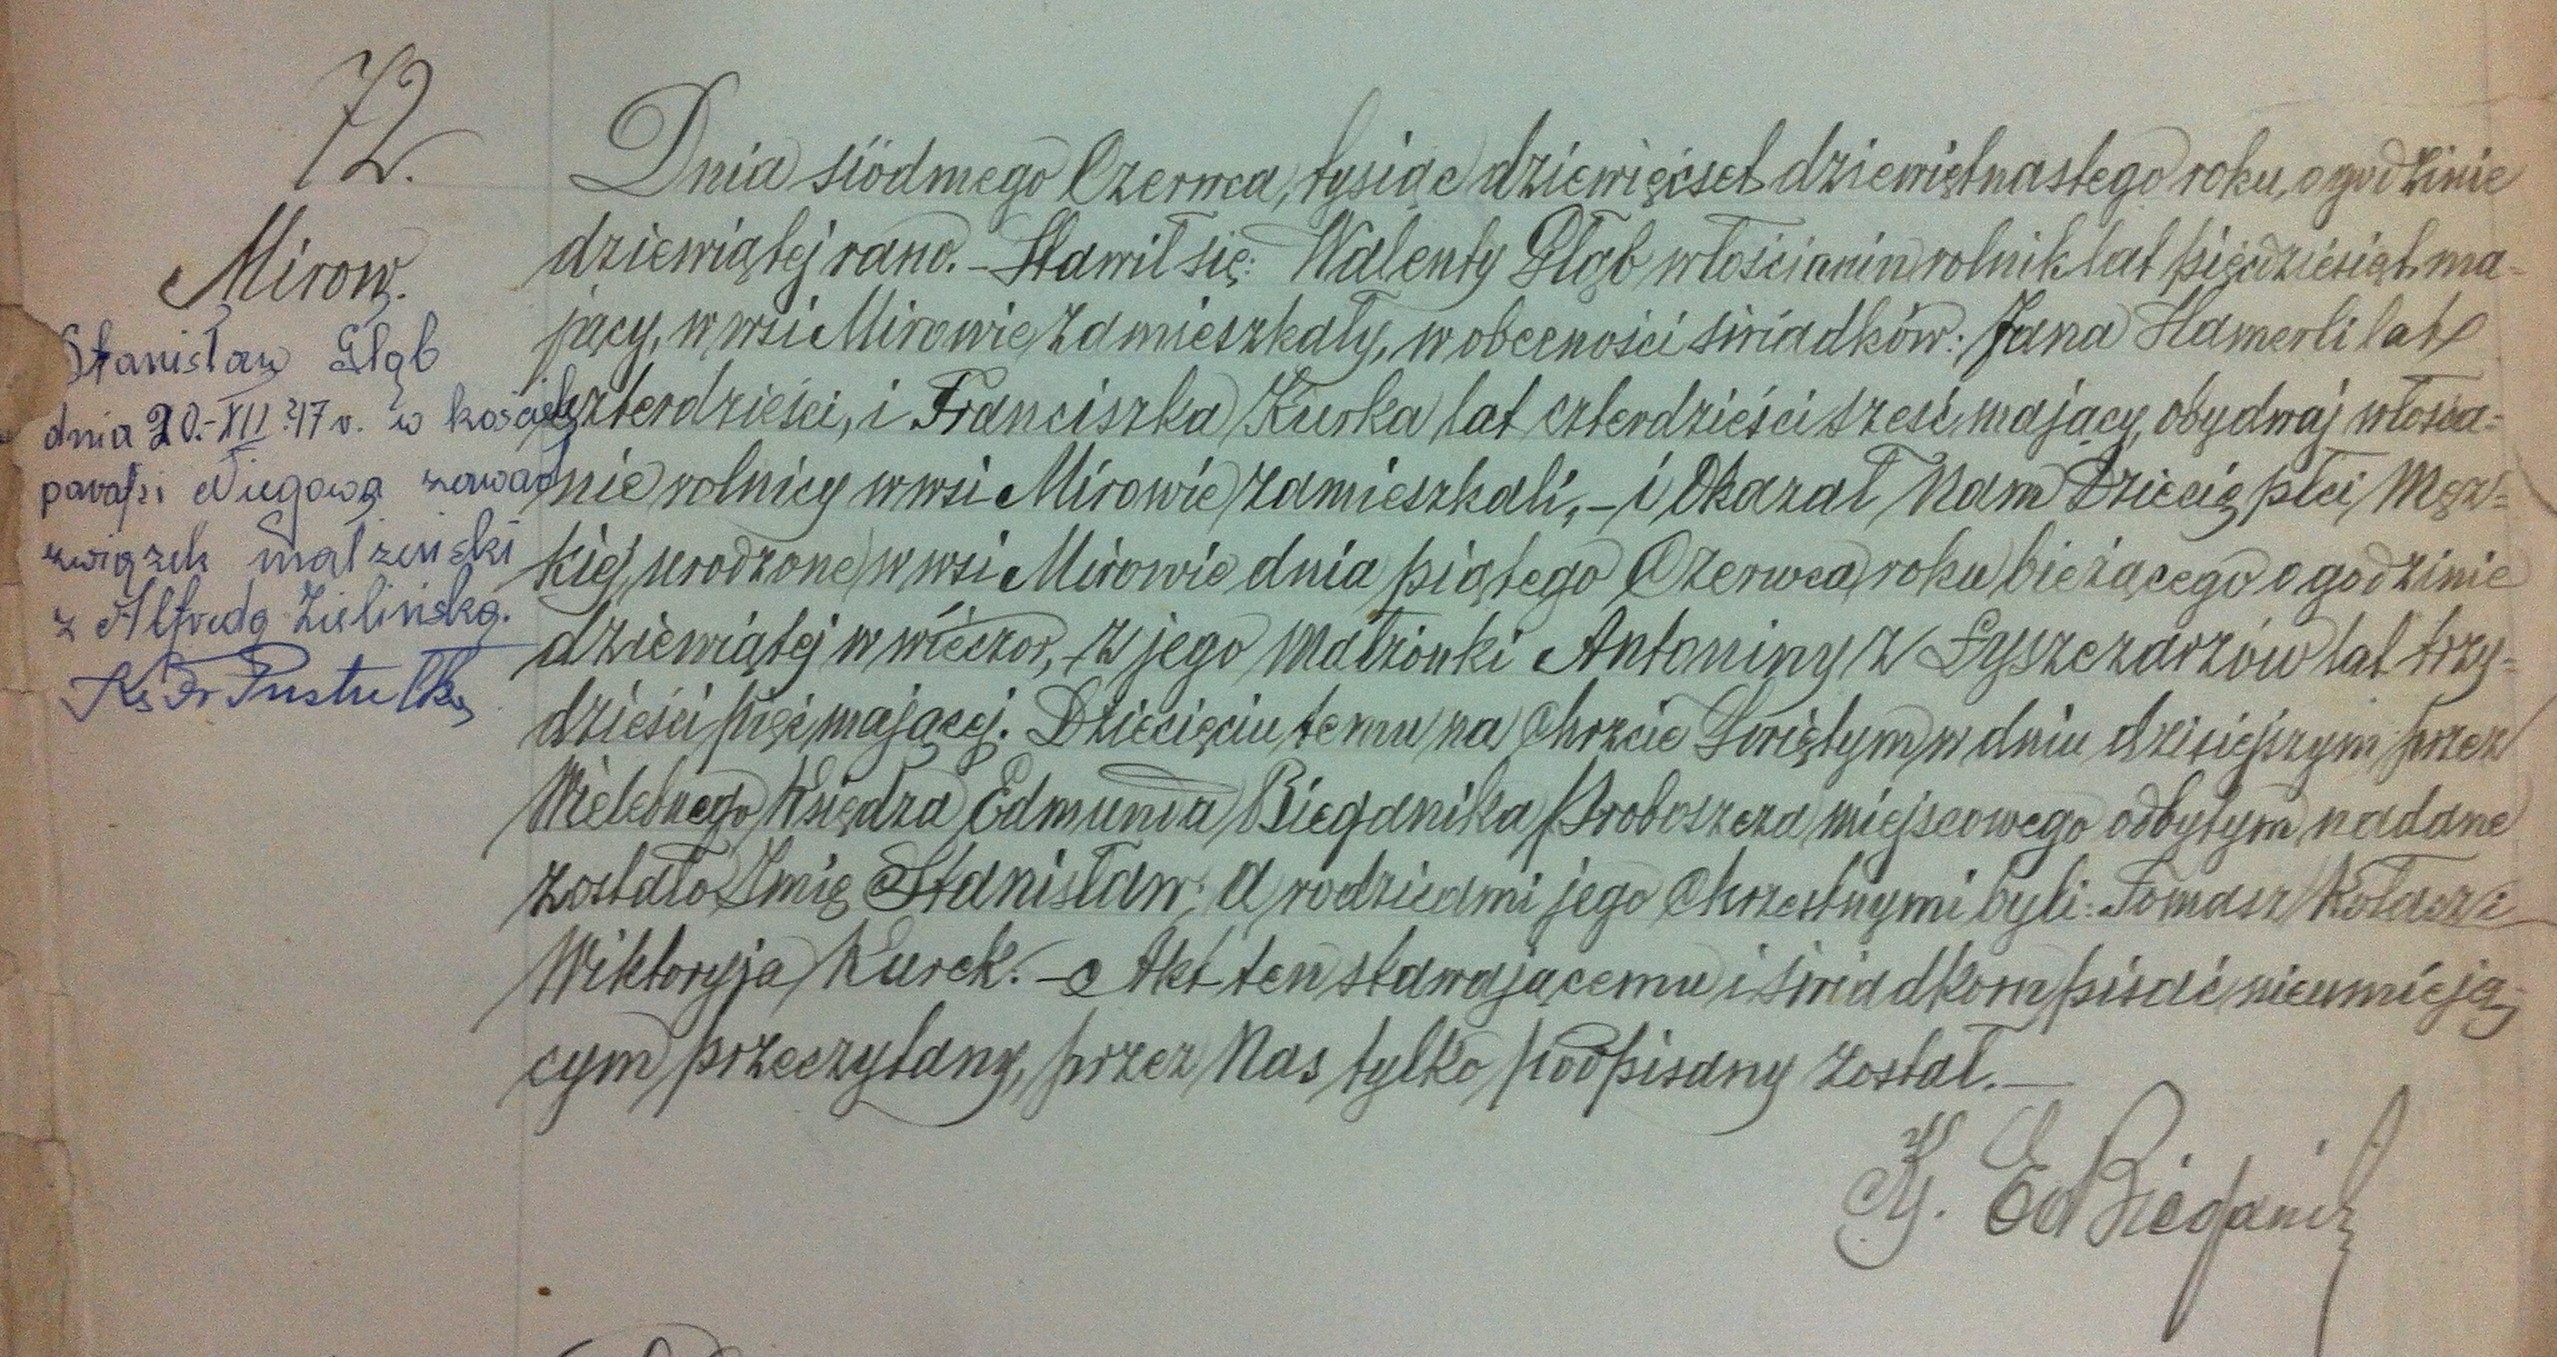 72.
Mirow.
Stanisław Głąb
dnia 20.-XII 47 r. w kościele
parafji Niegowa zawarł
związek małżeński
z Alfredą Zielińską.
Ks Fr Pustułka
Dnia siódmego Czerwca, tysiąc dziewięćset dziewiętnastego roku, o godzinie
dziewiątej rano. – Stawił się: Walenty Głąb włościanin rolnik lat pięćdziesiąt ma-
jący, w wsi Mirowie zamieszkały, w obecności świadków: Jana Hamerli lat
czterdzieści, i Franciszka Kurka lat czterdzieści sześć mający, obydwaj włościa-
nie rolnicy w wsi Mirowie zamieszkali, – i Okazał Nam Dziecię płci Męz-
kiej urodzone w wsi Mirowie dnia piątego Czerwca roku bieżącego o godzinie
dziewiątej w wieczor, – z jego Małżonki Antoniny z Łyszczarzów lat trzy-
dzieści pięć mającej. Dziecięciu temu na Chrzcie Świętym w dniu dzisiejszym przez
Wielebnego Księdza Edmunda Bieganika Proboszcza miejscowego odbytym nadane
zostało Imię Stanisław; a rodzicami jego Chrzestnymi byli: Tomasz Kołacz i
Wiktoryja Kurek. – Akt ten stawającemu i świadkom pisać nieumieją-
cym przeczytany, przez Nas tylko podpisany został. –
X. Ed Bieganik